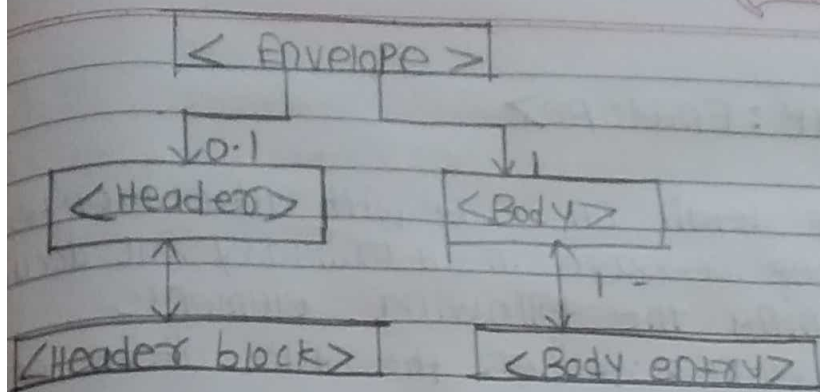 < Envelope >
0.1 1
<Header> <Body>
1-
<Header block> <Body entry>